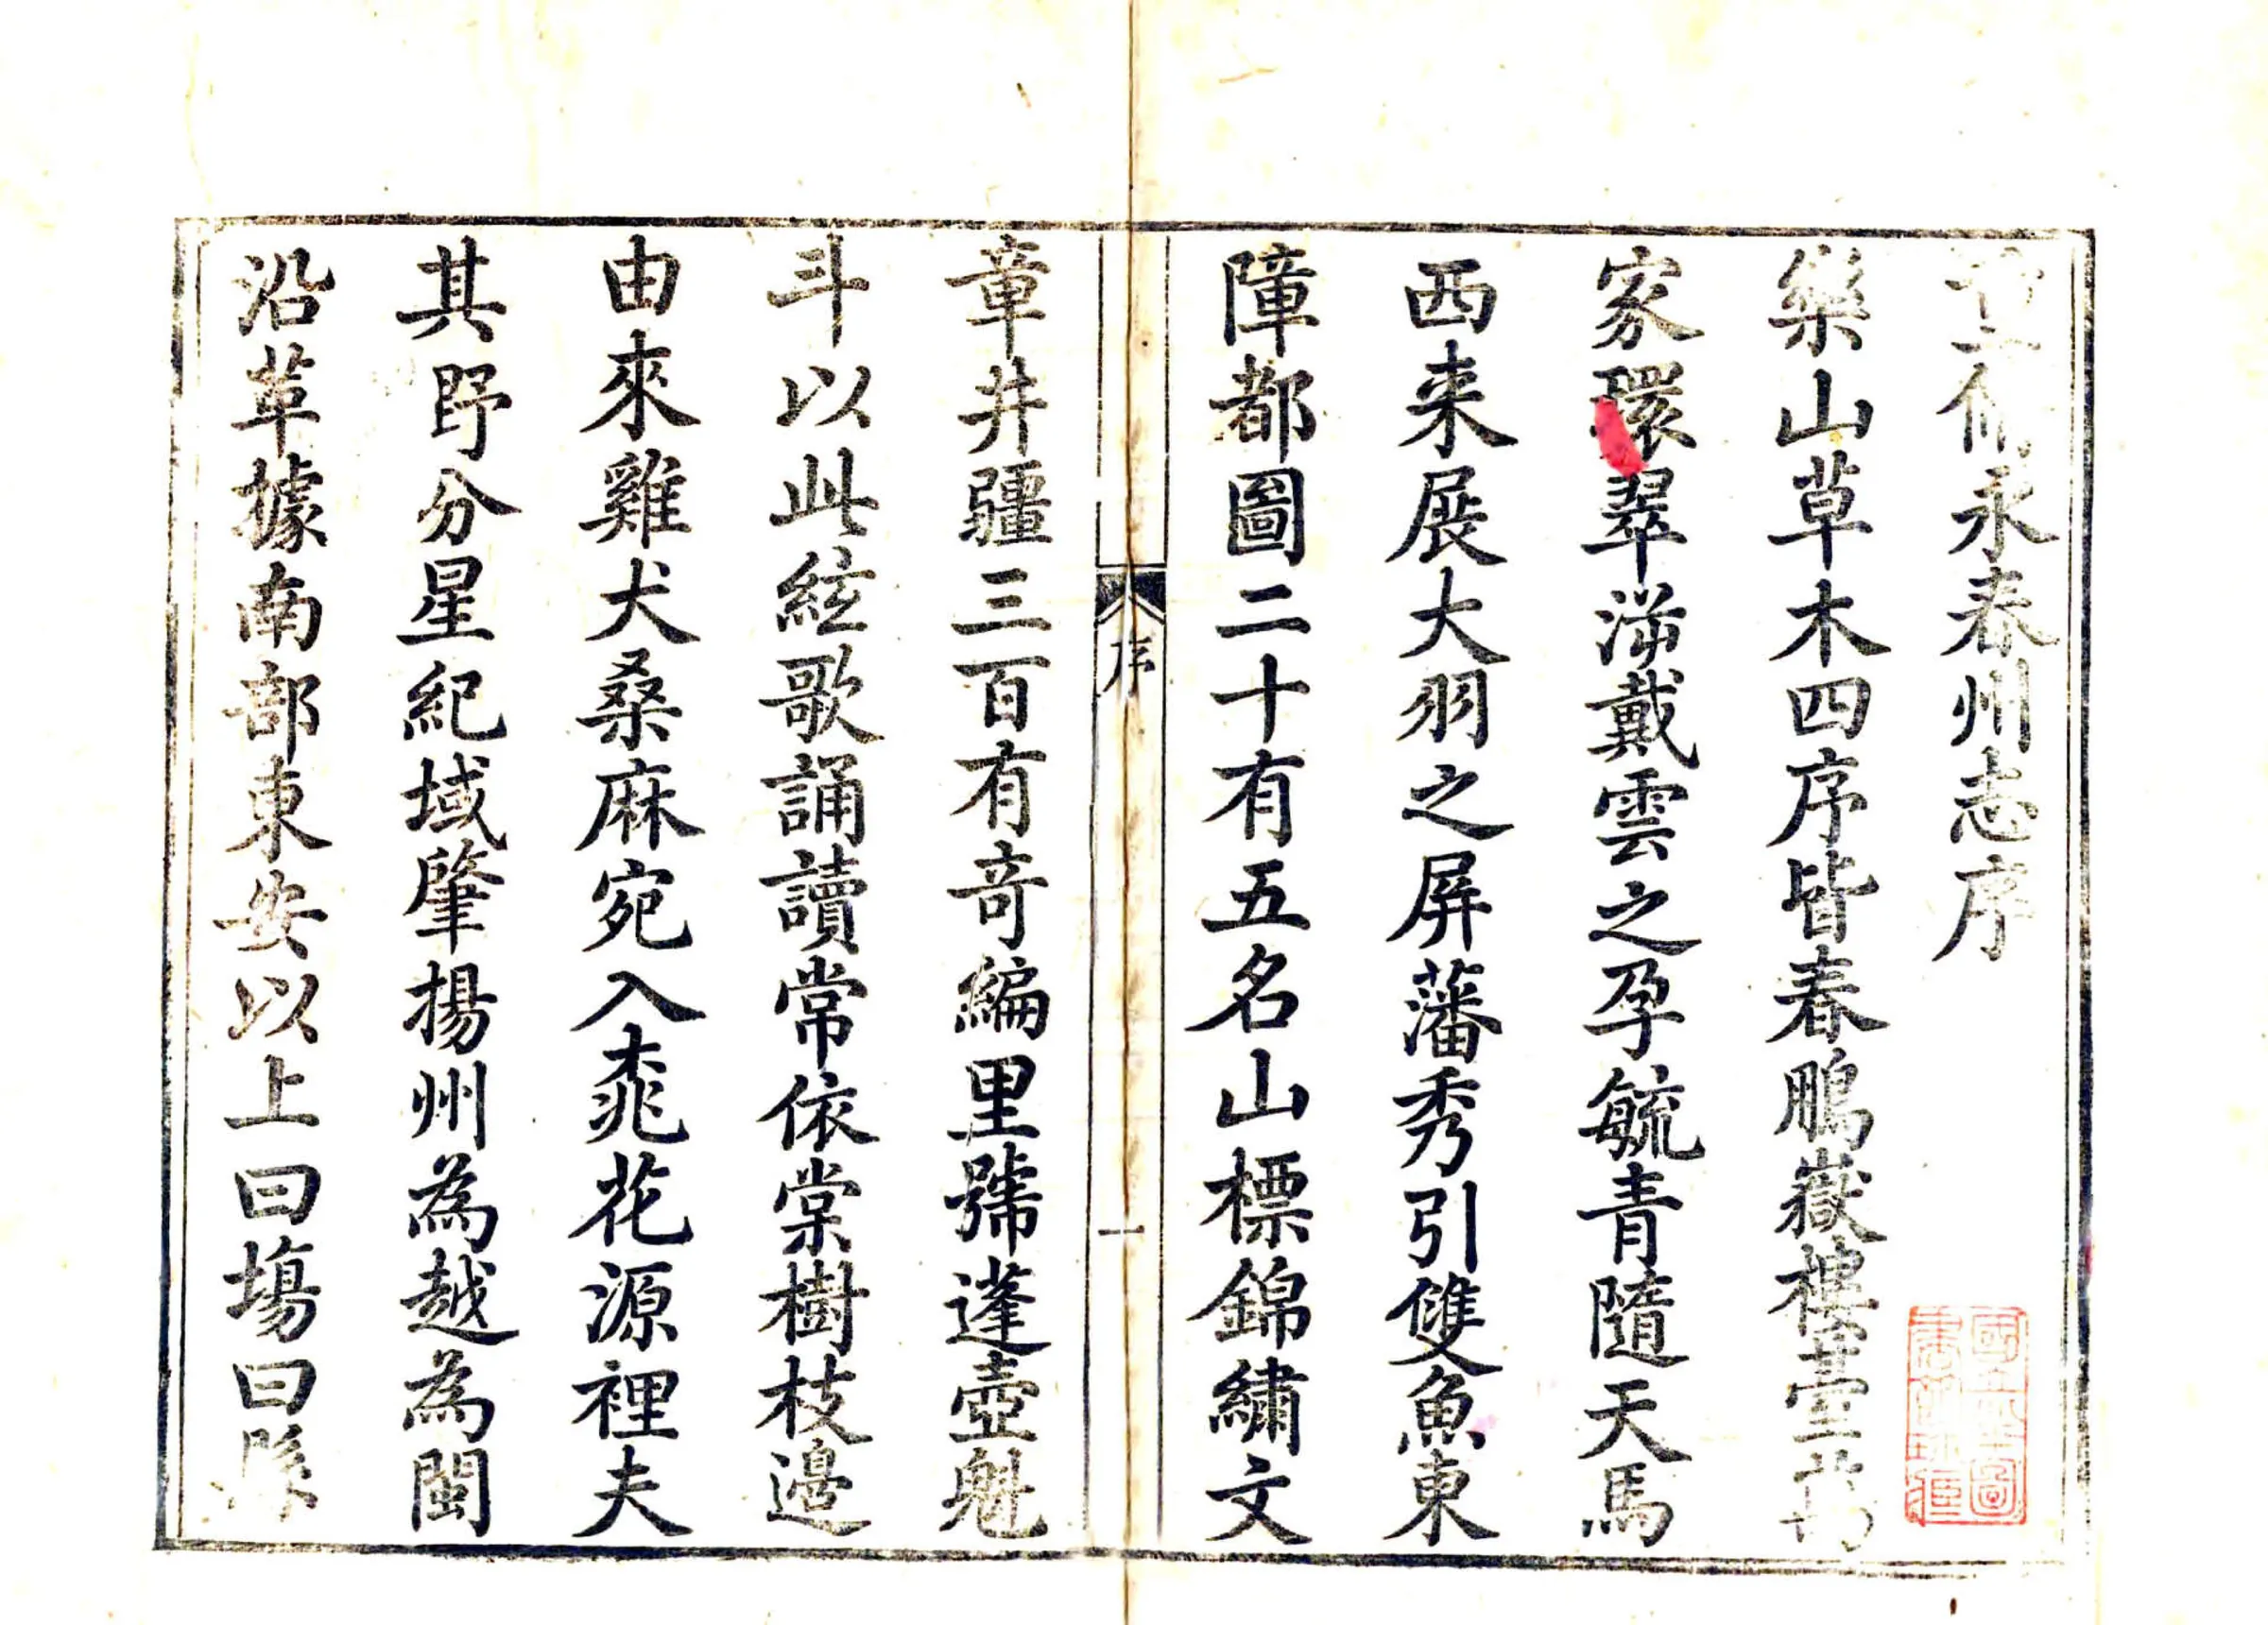 重修永春州志序
樂山草木四序皆春鵬嶽樓臺萬
家環翠滃戴雲之孕毓青隨天馬
西来展大羽之屏藩秀引雙魚東
障都圖二十有五名山標錦繡文
序
一
章井疆三百有竒編里號蓬壺魁
斗以此絃歌誦讀常依棠樹枝邊
由來雞犬桑麻宛入桃花源裡夫
其野分星紀域肇揚州為越為閩
沿革據南部東安以上曰塲曰縣